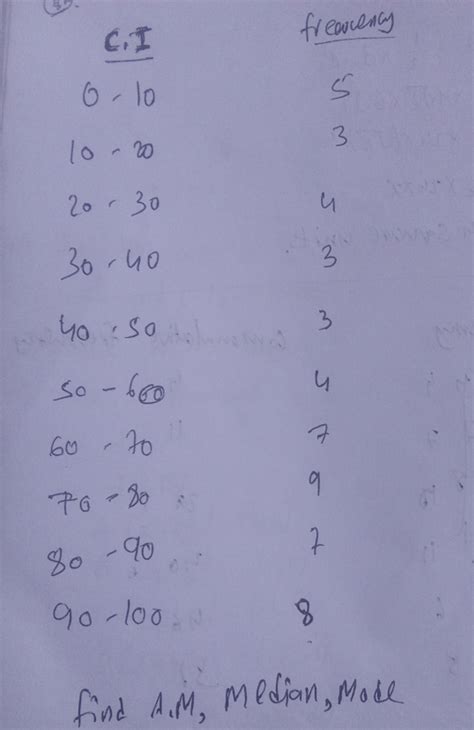 C.I frequency
0 - 10 5
10 - 20 3
20 - 30 4
30 - 40 3
40 - 50 3
50 - 60 4
60 - 70 7
70 - 80 9
80 - 90 7
90 - 100 8
find A.M, Median, Mode